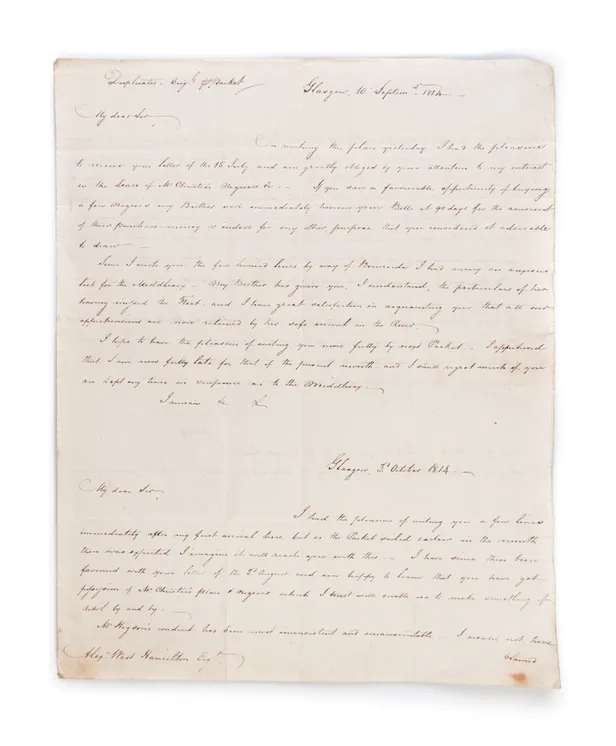 Duplicate. Orig.l p Packet
Glasgow, 10 Septem.r 1814.
My dear Sir,
On writing the plan yesterday I had the pleasure
to receive your letter of the 15 July and am greatly obliged by your attention to my interest
in the lease of Mr Christie's Negroes &c. — If you saw a favourable opportunity of buying
a few Negroes my Brother will immediately honour your Bills at 90 days for the amount
of their purchase-money or indeed for any other purpose that you considered it advisable
to draw —
Since I wrote you the few hurried lines by way of I had many an anxious
look for the Middlesex. — My Brother has given you, I understand, the particulars of her
having missed the Fleet, and I have great satisfaction in acquainting you that all our
apprehensions are now relieved by her safe arrival in the River. —
I hope to have the pleasure of writing you more fully by next Packet. — I apprehend
that I am now fully late for that of the present month and I shall regret much if you
are kept any time in suspence as to the Middlesex. —
I remain &c &c
Glasgow, 3.d October 1814. —
My dear Sir,
I had the pleasure of writing you a few lines
immediately after my first arrival here but as the Packet sailed earlier in the month
than was expected I imagine it will reach you with this. — I have since then been
favoured with your letter of the 2.d August and am happy to learn that you have got
possession of Mr Christie's place & negroes which I trust will enable us to make something of
by and by. —
Mr conduct has been most inconsistent and unaccountable. — I would not have
blamed
Alex.r West Hamilton Esq.r